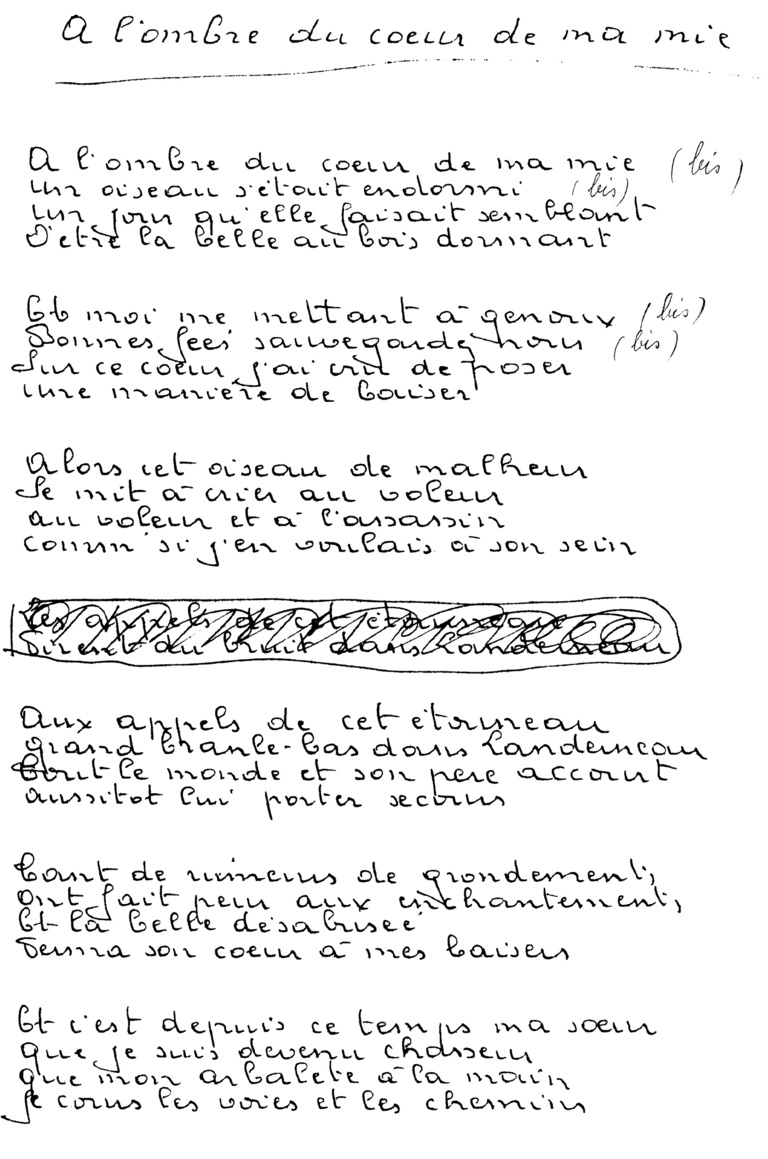 A l'ombre du coeur de ma mie
A l'ombre du coeur de ma mie (bis)
un oiseau s'était endormi (bis)
un jour qu'elle faisait semblant
D'etre la belle au bois dormant
Et moi me mettant à genoux (bis)
Bonnes fees sauvegardez nous (bis)
Sur ce coeur j'ai cru de poser
une manière de baiser
Alors cet oiseau de malheur
Se mit à crier au voleur
au voleur et à l'assassin
comm' si j'en voulais à son sein
Les appels de cet étourneau
Firent du bruit dans Landerneau
Aux appels de cet étourneau
grand branle-bas dans Landerneau
tout le monde et son pere accourt
aussitot lui porter secours
tant de rumeurs de grondements
ont fait peur aux enchantements
Et la belle désabusée
Ferma son coeur à mes baisers
Et c'est depuis ce temps ma soeur
que je suis devenu chasseur
que mon arbalete à la main
je cours les voies et les chemins